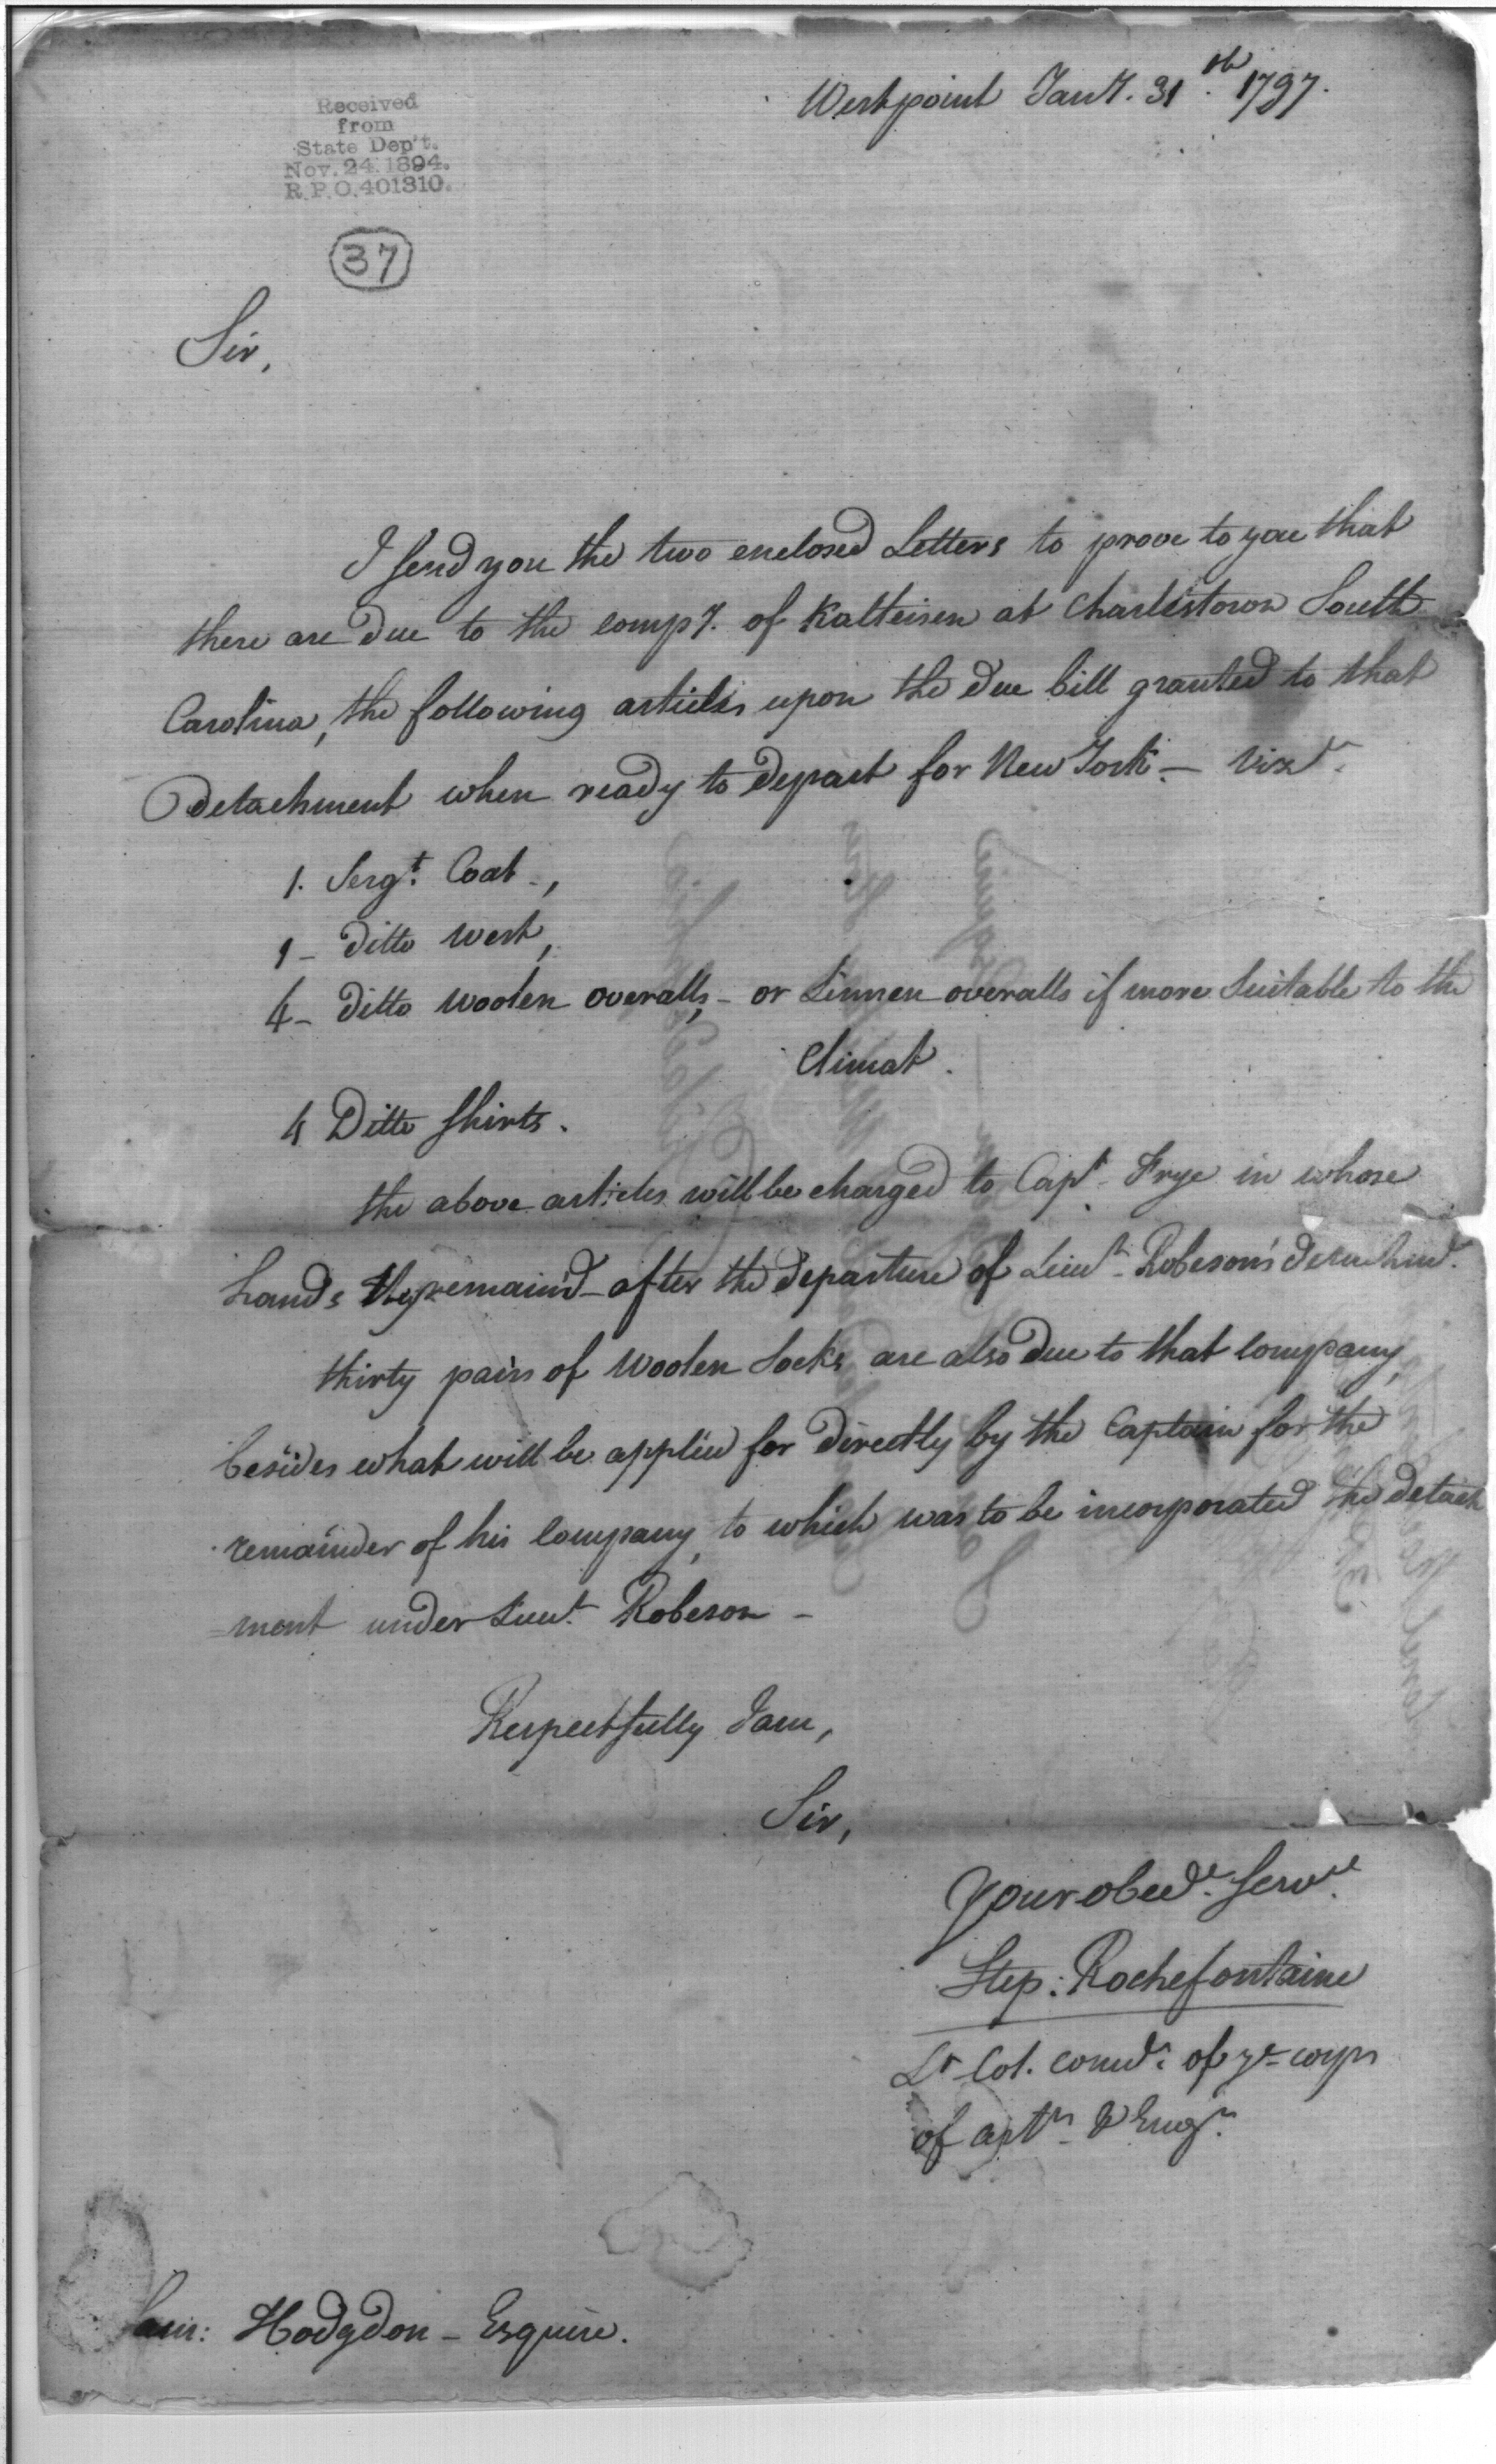 Westpoint Jany. 31st. 1797.
Received
from
State Dep't.
Nov. 24. 1894.
R.P.O. 401310.
37
Sir,
I send you the two enclosed Letters to prove to you that
there are due to the compy. of Kalteisen at Charlestown South
Carolina, the following articles upon the due bill granted to that
Detachment when ready to depart for New York. — vizt.
1. Sergt. Coat -,
1 - ditto vest,
4 - ditto woolen overalls, - or Linnen overalls if more Suitable to the
Climat.
4 Ditto Shirts.
the above articles will be charged to Capt. Frye in whose
hands they remain'd - after the departure of Lieut. Robeson's detachmt.
thirty pairs of woolen Socks are also due to that company,
besides what will be applied for directly by the Captain for the
remainder of his company, to which was to be incorporated the detach
=ment under Lieut. Robeson -
Respectfully I am,
Sir,
Your obedt. Servt.
Step: Rochefontaine
Lt Col. comdt. of ye corps
of artrs & Engrs.
Sam: Hodgdon - Esquire.